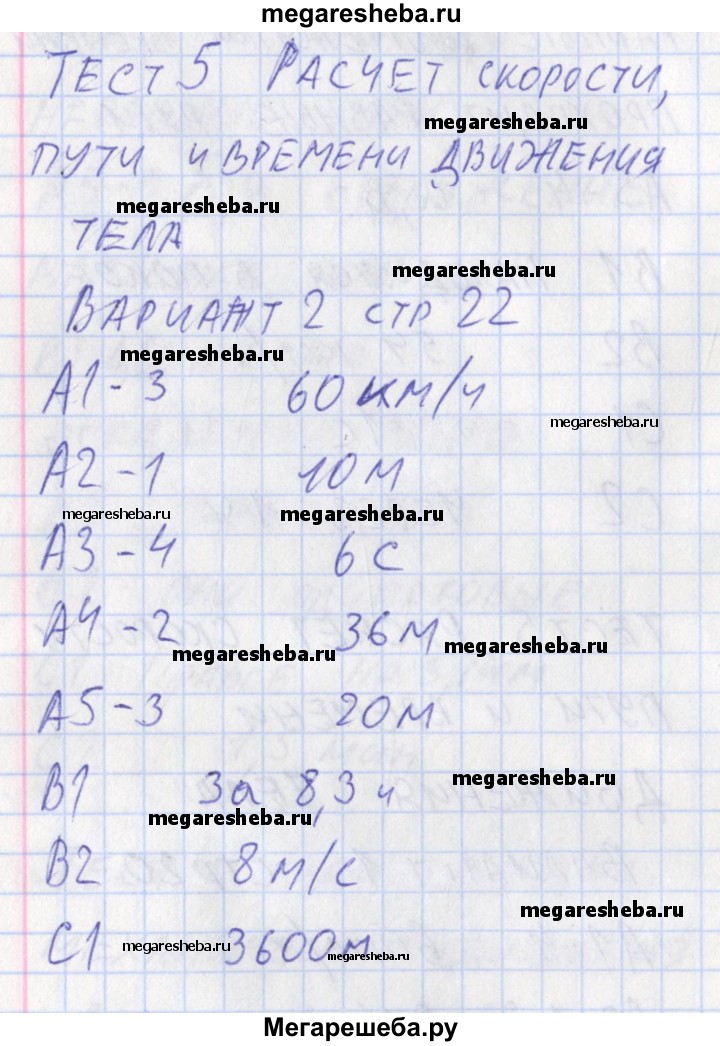 megaresheba.ru
ТЕСТ 5 РАСЧЕТ СКОРОСТИ,
megaresheba.ru
ПУТИ И ВРЕМЕНИ ДВИЖЕНИЯ
megaresheba.ru
ТЕЛА
megaresheba.ru
ВАРИАНТ 2 СТР 22
megaresheba.ru
А1 - 3 60 км/ч
megaresheba.ru
А2 - 1 10 м
megaresheba.ru megaresheba.ru
А3 - 4 6 с
А4 - 2 36 м
megaresheba.ru megaresheba.ru
А5 - 3 20 м
megaresheba.ru
В1 За 8,3 ч
megaresheba.ru
В2 8 м/с
megaresheba.ru
С1 megaresheba.ru 3600м
megaresheba.ru
Мегарешеба.ру